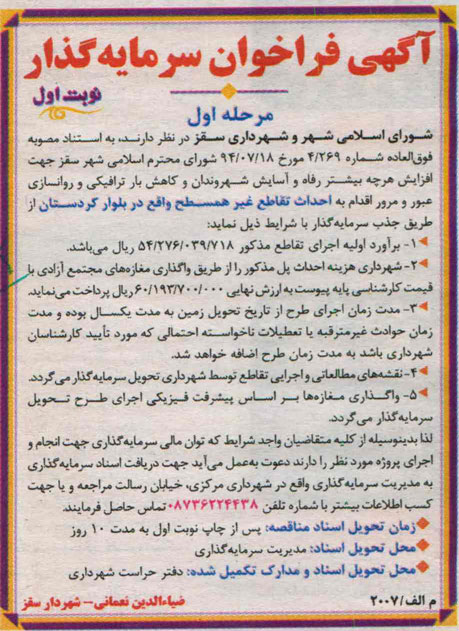 آگهی فراخوان سرمایه‌گذار
نوبت اول
مرحله اول
شورای اسلامی شهر و شهرداری سقز در نظر دارند، به استناد مصوبه
فوق‌العاده شماره ۴/۲۶۹ مورخ ۹۴/۰۷/۱۸ شورای محترم اسلامی شهر سقز جهت
افزایش هرچه بیشتر رفاه و آسایش شهروندان و کاهش بار ترافیکی و روانسازی
عبور و مرور اقدام به احداث تقاطع غیر همسطح واقع در بلوار کردستان از
طریق جذب سرمایه‌گذار با شرایط ذیل نماید:
۱- برآورد اولیه اجرای تقاطع مذکور ۵۴/۲۷۶/۰۳۹/۷۱۸ ریال می‌باشد.
۲- شهرداری هزینه احداث پل مذکور را از طریق واگذاری مغازه‌های مجتمع آزادی با
قیمت کارشناسی پایه پیوست به ارزش نهایی ۶۰/۱۹۳/۷۰۰/۰۰۰ ریال پرداخت می‌نماید.
۳- مدت زمان اجرای طرح از تاریخ تحویل زمین به مدت یکسال بوده و مدت
زمان حوادث غیرمترقبه یا تعطیلات ناخواسته احتمالی که مورد تأیید کارشناسان
شهرداری باشد به مدت زمان طرح اضافه خواهد شد.
۴- نقشه‌های مطالعاتی و اجرایی تقاطع توسط شهرداری تحویل سرمایه‌گذار می‌گردد.
۵- واگذاری مغازه‌ها بر اساس پیشرفت فیزیکی اجرای طرح تحویل
سرمایه‌گذار می‌گردد.
لذا بدینوسیله از کلیه متقاضیان واجد شرایط که توان مالی سرمایه‌گذاری جهت انجام و
اجرای پروژه مورد نظر را دارند دعوت به‌عمل می‌آید جهت دریافت اسناد سرمایه‌گذاری
به مدیریت سرمایه‌گذاری واقع در شهرداری مرکزی، خیابان رسالت مراجعه و یا جهت
کسب اطلاعات بیشتر با شماره تلفن ۰۸۷۳۶۲۲۴۴۳۸ تماس حاصل فرمایند.
زمان تحویل اسناد مناقصه: پس از چاپ نوبت اول به مدت ۱۰ روز
محل تحویل اسناد: مدیریت سرمایه‌گذاری
محل تحویل اسناد و مدارک تکمیل شده: دفتر حراست شهرداری
م الف/۲۰۰۷
ضیاءالدین نعمانی- شهردار سقز